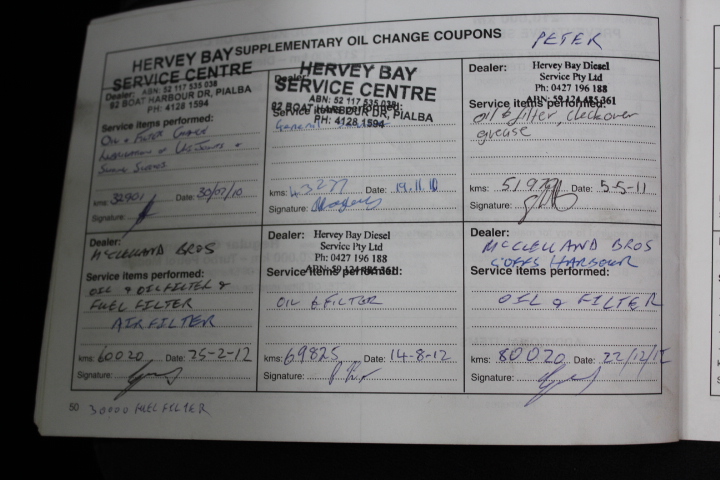 SUPPLEMENTARY OIL CHANGE COUPONS
PETER
HERVEY BAY
SERVICE CENTRE
Dealer: ABN: 52 117 535 038
82 BOAT HARBOUR DR, PIALBA
PH: 4128 1594
Service items performed:
OIL & FILTER CHANGE
LUBRICATION OF UNI JOINTS &
kms: 32901 Date: 30/07/10
Signature:
Dealer:
HERVEY BAY
SERVICE CENTRE
ABN: 52 117 535 038
82 BOAT HARBOUR DR, PIALBA
PH: 4128 1594
Service items performed:
General
kms: 43277 Date: 19.11.10
Signature:
Dealer:
Hervey Bay Diesel
Service Pty Ltd
Ph: 0427 196 188
ABN: 59 124 485 361
Service items performed:
oil & filter, check over
grease
kms: Date: 5-5-11
Signature:
Dealer:
McCLELLAND BROS
Service items performed:
OIL & OIL FILTER &
FUEL FILTER
AIR FILTER
kms: 60020 Date: 25-2-12
Signature:
Dealer:
Hervey Bay Diesel
Service Pty Ltd
Ph: 0427 196 188
ABN: 59 124 485 361
Service items performed:
OIL & FILTER
kms: 69825 Date: 14-8-12
Signature:
Dealer:
McCLELLAND BROS
COFFS HARBOUR
Service items performed:
OIL & FILTER
kms: 80020 Date: 22/12/12
Signature:
50
30000 FUEL FILTER